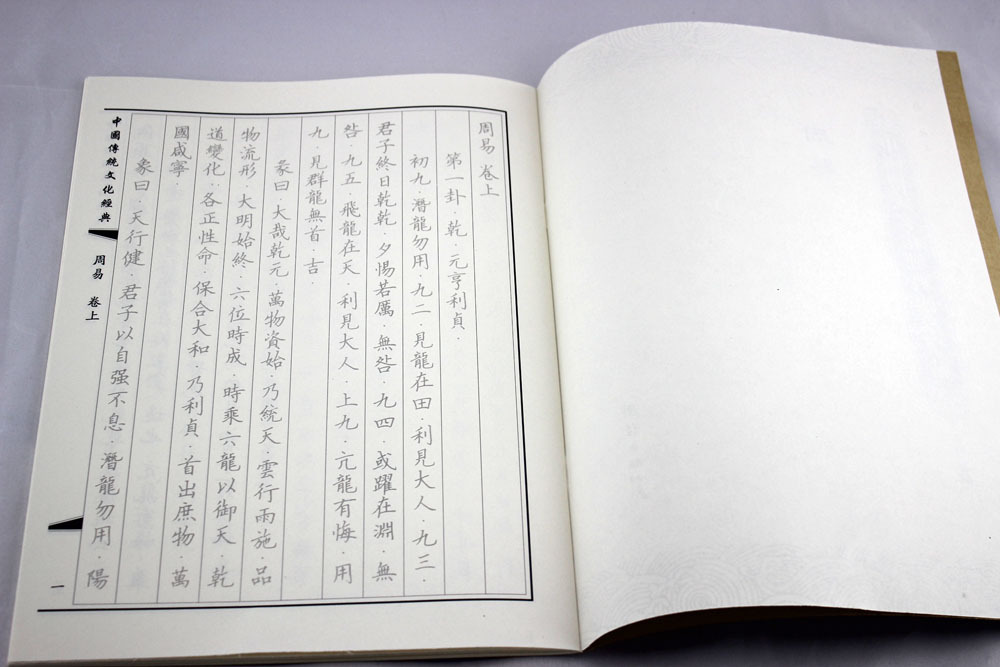 周易 卷上
第一卦．乾．元亨利貞．
初九．潛龍勿用．九二．見龍在田．利見大人．九三．
君子終日乾乾．夕惕若厲．無咎．九四．或躍在淵．無
咎．九五．飛龍在天．利見大人．上九．亢龍有悔．用
九．見群龍無首．吉．
彖曰．大哉乾元．萬物資始．乃統天．雲行雨施．品
物流形．大明始終．六位時成．時乘六龍以御天．乾
道變化．各正性命．保合大和．乃利貞．首出庶物．萬
國咸寧．
象曰．天行健．君子以自强不息．潛龍勿用．陽
中國傳統文化經典
周易 卷上
一